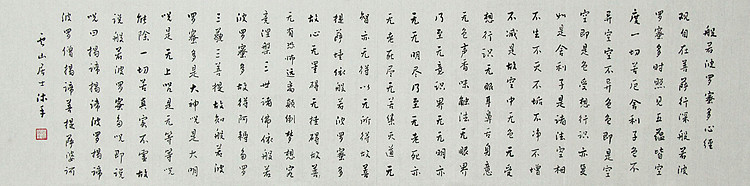 般若波罗蜜多心经
观自在菩萨行深般若波
罗蜜多时照见五蕴皆空
度一切苦厄舍利子色不
异空空不异色色即是空
空即是色受想行识亦复
如是舍利子是诸法空相
不生不灭不垢不净不增
不减是故空中无色无受
想行识无眼耳鼻舌身意
无色声香味触法无眼界
乃至无意识界无无明亦
无无明尽乃至无老死亦
无老死尽无苦集灭道无
智亦无得以无所得故菩
提萨埵依般若波罗蜜多
故心无罣碍无罣碍故
无有恐怖远离颠倒梦想究
竟涅槃三世诸佛依般若
波罗蜜多故得阿耨多罗
三藐三菩提故知般若波
罗蜜多是大神咒是大明
咒是无上咒是无等等咒
能除一切苦真实不虚故
说般若波罗蜜多咒即说
咒曰揭谛揭谛波罗揭谛
波罗僧揭谛菩提萨婆诃
云山居士沐手